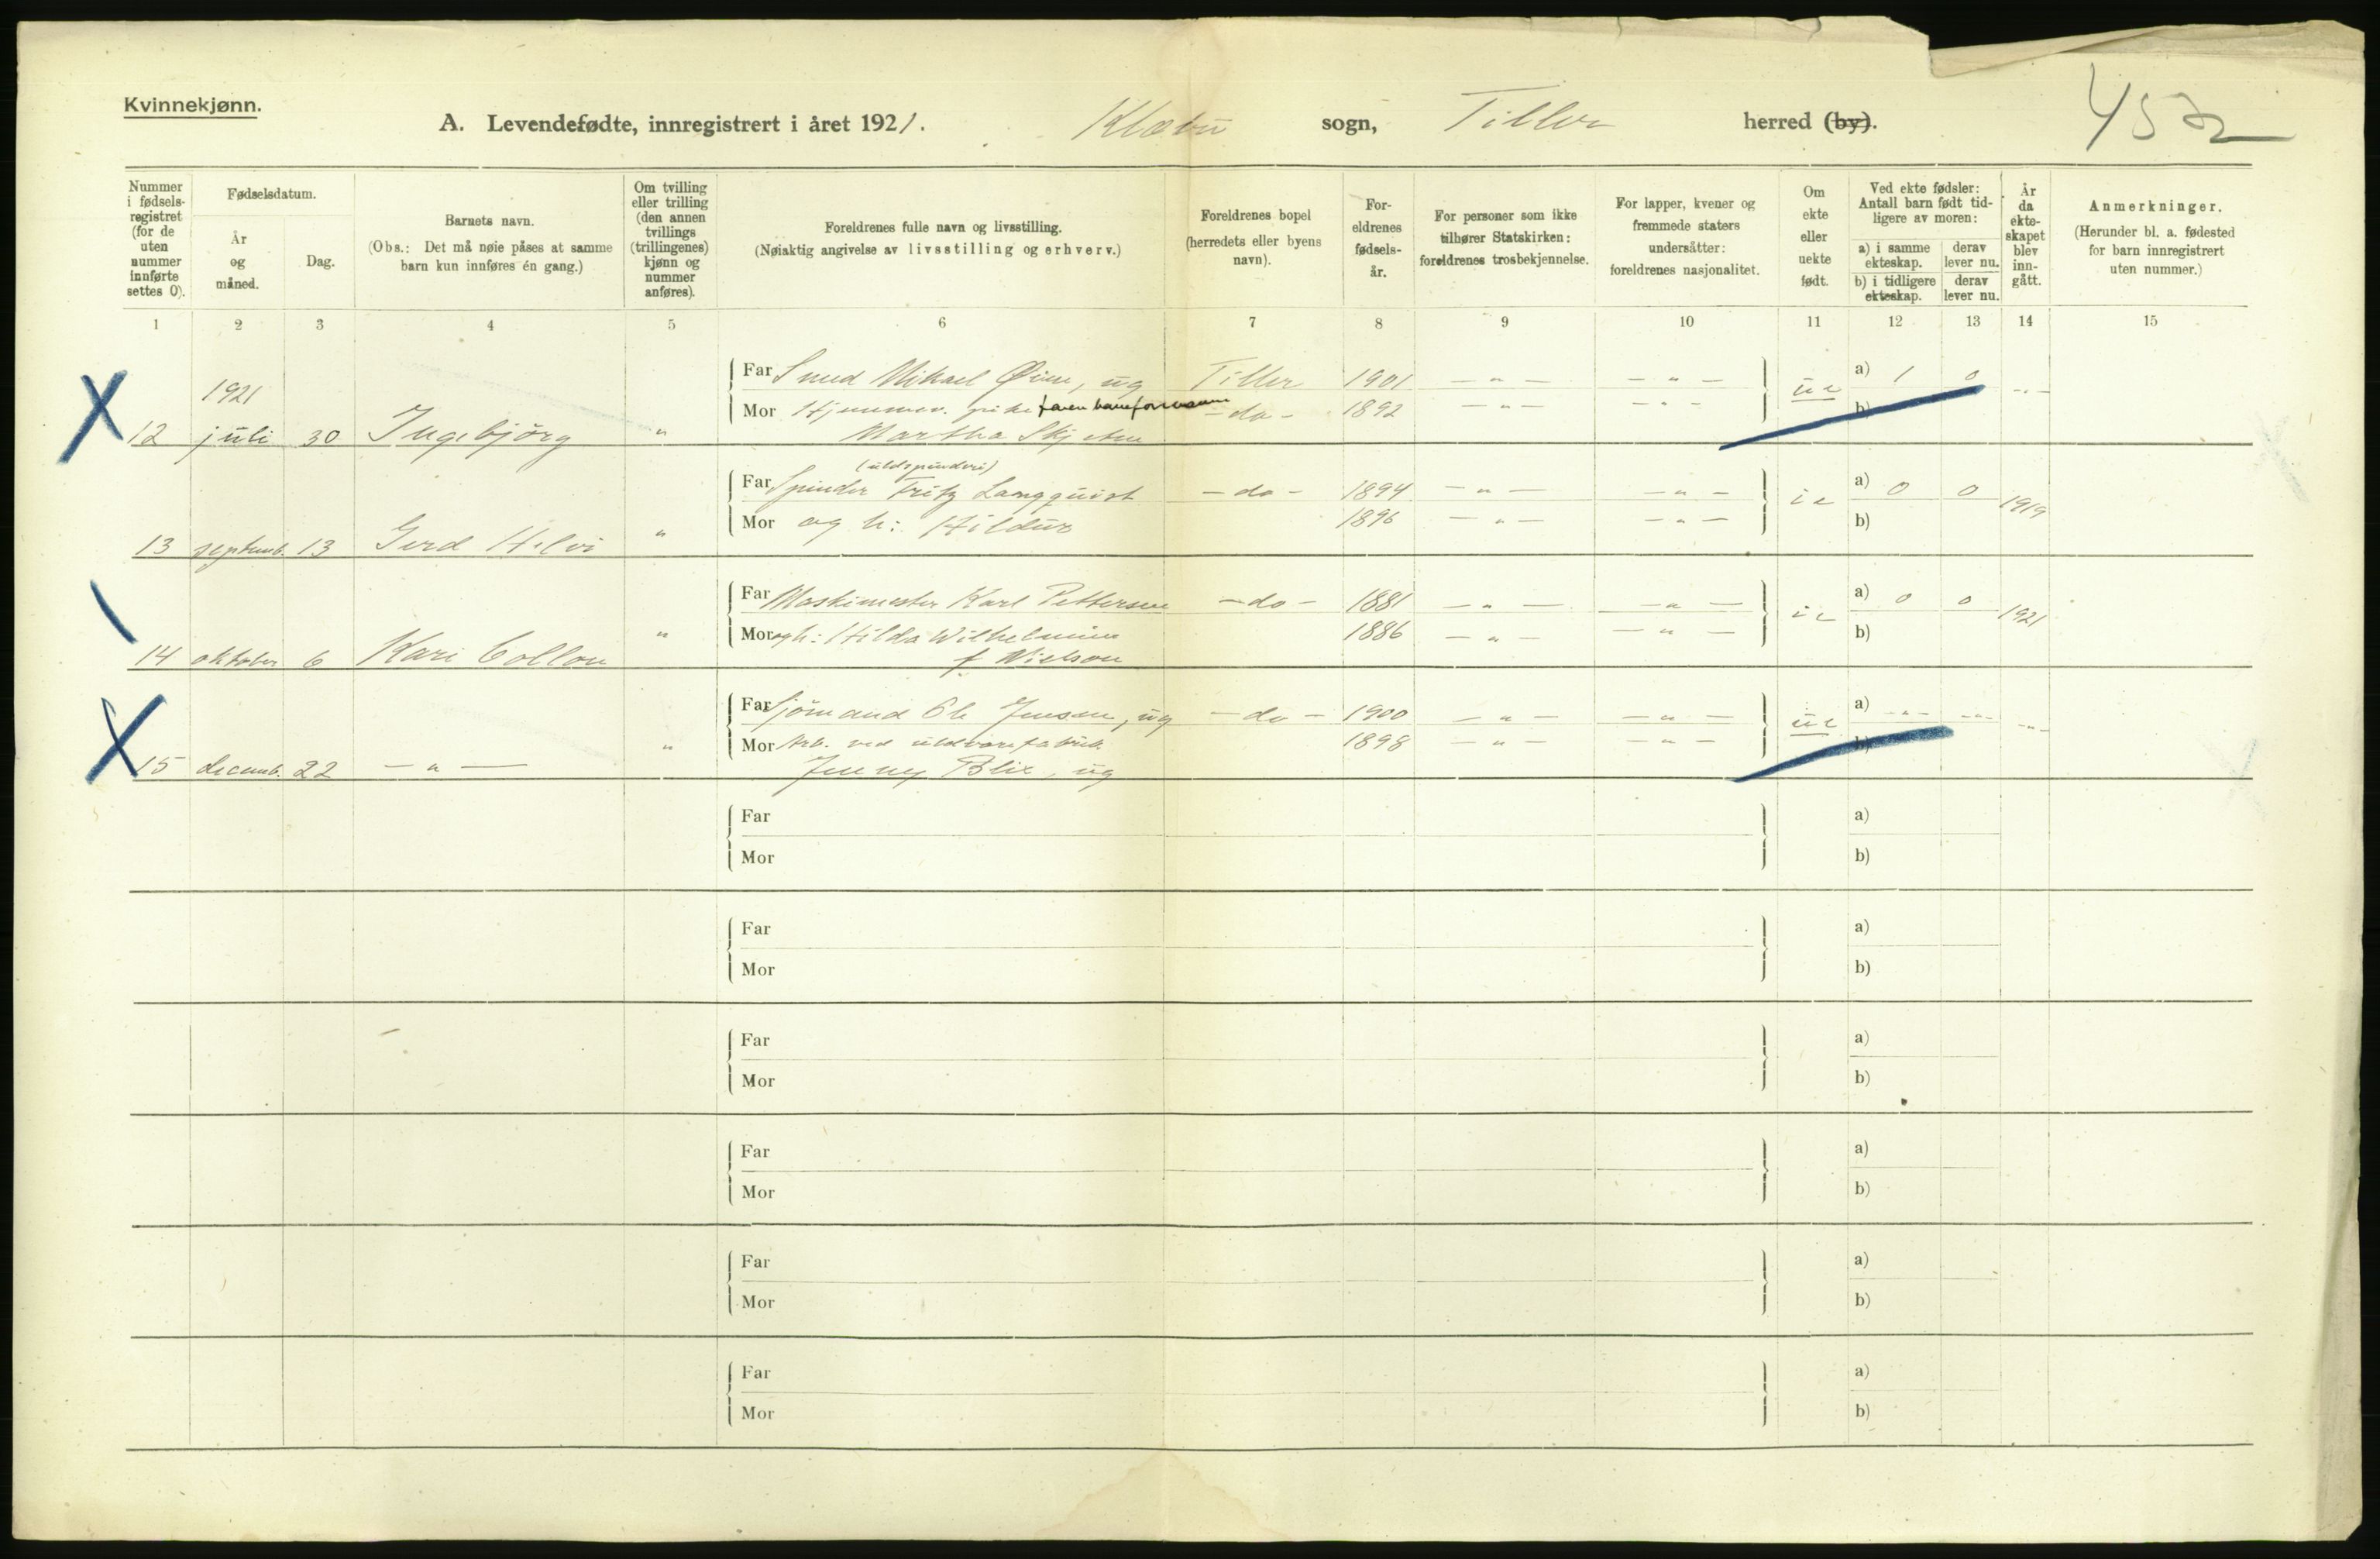 Kvinnekjønn.
A. Levendefødte, innregistrert i året 1921. Klæbu sogn, Tiller herred (by).
Nummer i fødsels-registret (for de uten nummer innførte settes 0).
Fødselsdatum.
År og måned.
Dag.
Barnets navn.
(Obs.: Det må nøie påses at samme barn kun innføres én gang.)
Om tvilling eller trilling (den annen tvillings (trillingenes) kjønn og nummer anføres).
Foreldrenes fulle navn og livsstilling.
(Nøiaktig angivelse av livsstilling og erhverv.)
Foreldrenes bopel (herredets eller byens navn).
For-eldrenes fødsels-år.
For personer som ikke tilhører Statskirken: foreldrenes trosbekjennelse.
For lapper, kvener og fremmede staters undersåtter: foreldrenes nasjonalitet.
Om ekte eller uekte født.
Ved ekte fødsler: Antall barn født tid-ligere av moren:
a) i samme ekteskap.
derav lever nu.
b) i tidligere ekteskap.
derav lever nu.
År da ekte-skapet blev inn-gått.
Anmerkninger.
(Herunder bl. a. fødested for barn innregistrert uten nummer.)
1 2 3 4 5 6 7 8 9 10 11 12 13 14 15
Far Smed Mikael Øien, ug Tiller 1901 — " — — " — ue a) 1 0 - - -
1921
Mor Hjemmev. pike -do- 1892 — " — — " — b)
12 juli 30 Ingebjörg " Martha Skjetne
(uldspinderi)
Far Spinder Fritz Langquist -do- 1894 — " — — " — ie a) 0 0 1919
Mor og h: Hildur 1896 — " — — " — b)
13 septemb. 13 Gerd Helvi "
Far Maskimester Karl Pettersen -do- 1881 — " — — " — ie a) 0 0 1921
Mor og h: Hilda Wilhelmine 1886 — " — — " — b)
14 oktober 6 Kari Collou " f. Nielson
Far Sjömand Ole Jensen, ug -do- 1900 — " — — " — ue a) - - - - - - - - -
Mor Arb. ved uldvarefabrik 1898 — " — — " — b)
15 decemb. 22 — " — " Jenny Blix, ug
Far a)
Mor b)
Far a)
Mor b)
Far a)
Mor b)
Far a)
Mor b)
Far a)
Mor b)
Far a)
Mor b)